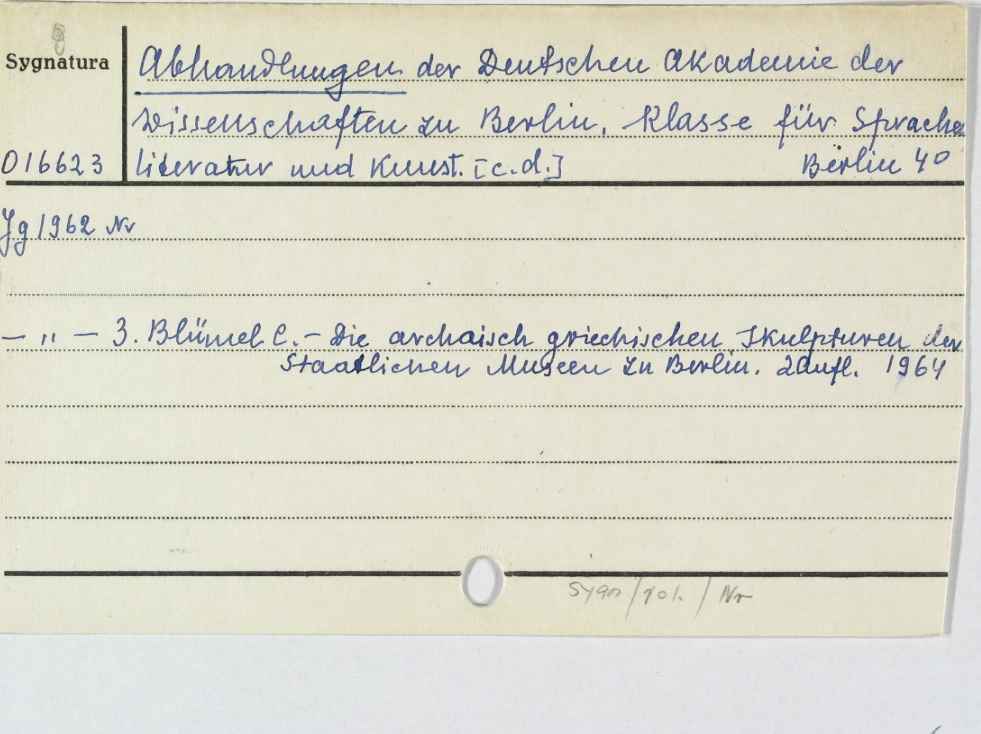 Sygnatura
Abhandlungen der Deutschen Akademie der
Wissenschaften zu Berlin. Klasse für Sprache
016623
literatur und Kunst. [c.d.] Berlin 4°
Jg 1962 Nr
— „ — 3. Blümel C. - Die archaisch griechischen Skulpturen der
Staatlichen Museen zu Berlin. 2 Aufl. 1964
Sygn / / Nr